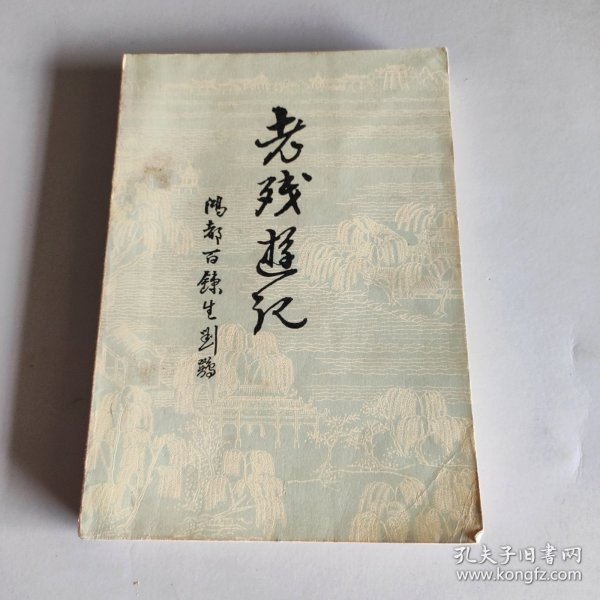 老残遊记
鸿都百鍊生刘鹗
孔夫子旧书网
www.kongfz.com